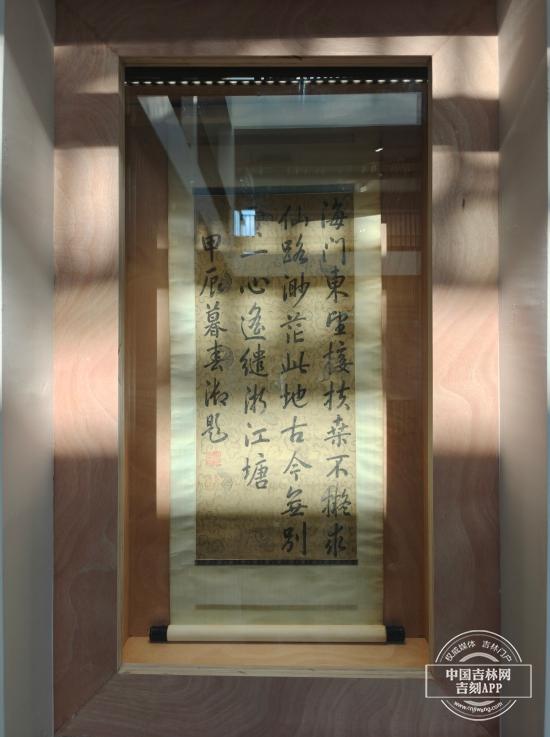 海门東望接扶桒不擬求
仙路渺茫此地古今無別
一心遙繾浙江塘
甲辰暮春御題
权威媒体 吉林门户
中国吉林网
吉刻APP
www.cnjiwang.com